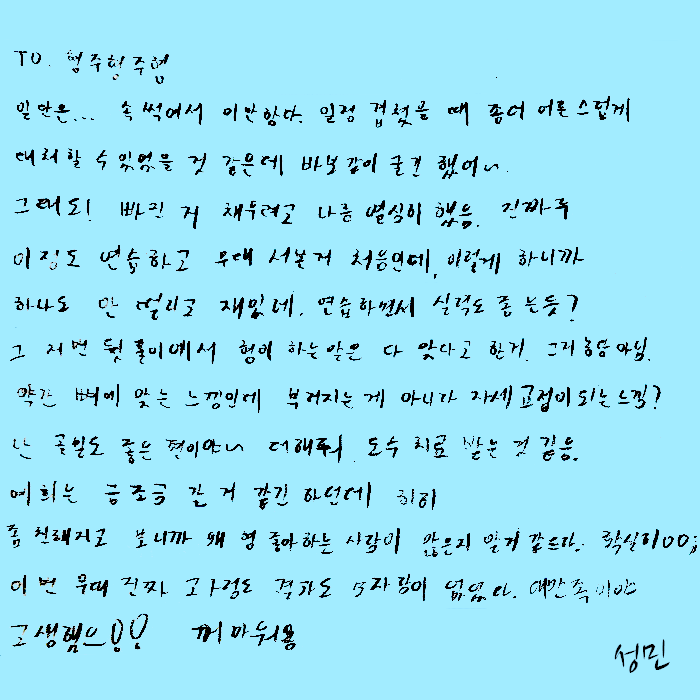 TO. 형주형주형
일단은... 속 썩여서 미안하다. 일정 겹쳤을 때 좀더 어른스럽게
대처할 수 있었을 것 같은데 바보같이 굴긴 했어ㅠ.
그래도! 빠진 거 채우려고 나름 열심히 했음. 진짜루
이정도 연습하고 무대 서본거 처음인데, 이렇게 하니까
하나도 안 떨리고 재밌네. 연습하면서 실력도 좀 는듯?
그 저번 뒷풀이에서 형이 하는말은 다 맞다고 한거, 그거 농담 아님.
약간 뼈에 맞는 느낌인데 부러지는 게 아니라 자세교정이 되는 느낌?
난 골밀도 좋은 편이야ㅠ 더해줘 도수 치료 받는 것 같음.
예희는 금조금 갈 거 같긴 하던데 히히
좀 친해지고 보니까 왜 형 좋아하는 사람이 많은지 알거 같드라. 확실히ㅇㅇ;
이번 무대 진짜 과정도 결과도 모자람이 없었다. 대만족이야
고생했으!! 꼬마워용
성민